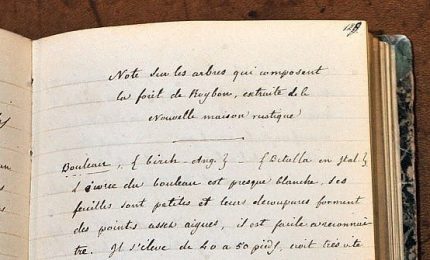 Note sur les arbres qui composent
la forêt de Roybon, extraite de la
Nouvelle maison rustique
Bouleau, { birch - Ang. } - { Betulla en Ital. }
L'écorce du bouleau est presque blanche, ses
feuilles sont petites et leurs découpures forment
des points assez aigues, il est facile a reconnaî-
tre. Il s'élève de 40 a 50 pieds, croit très vite